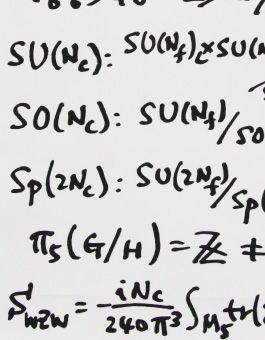 SU(N_c): SU(N_f)_L×SU(N
SO(N_c): SU(N_f)/SO
Sp(2N_c): SU(2N_f)/Sp(
π_5(G/H) = ℤ ≠
S_WZW = -iN_c/240π^3 ∫_M_5 tr(